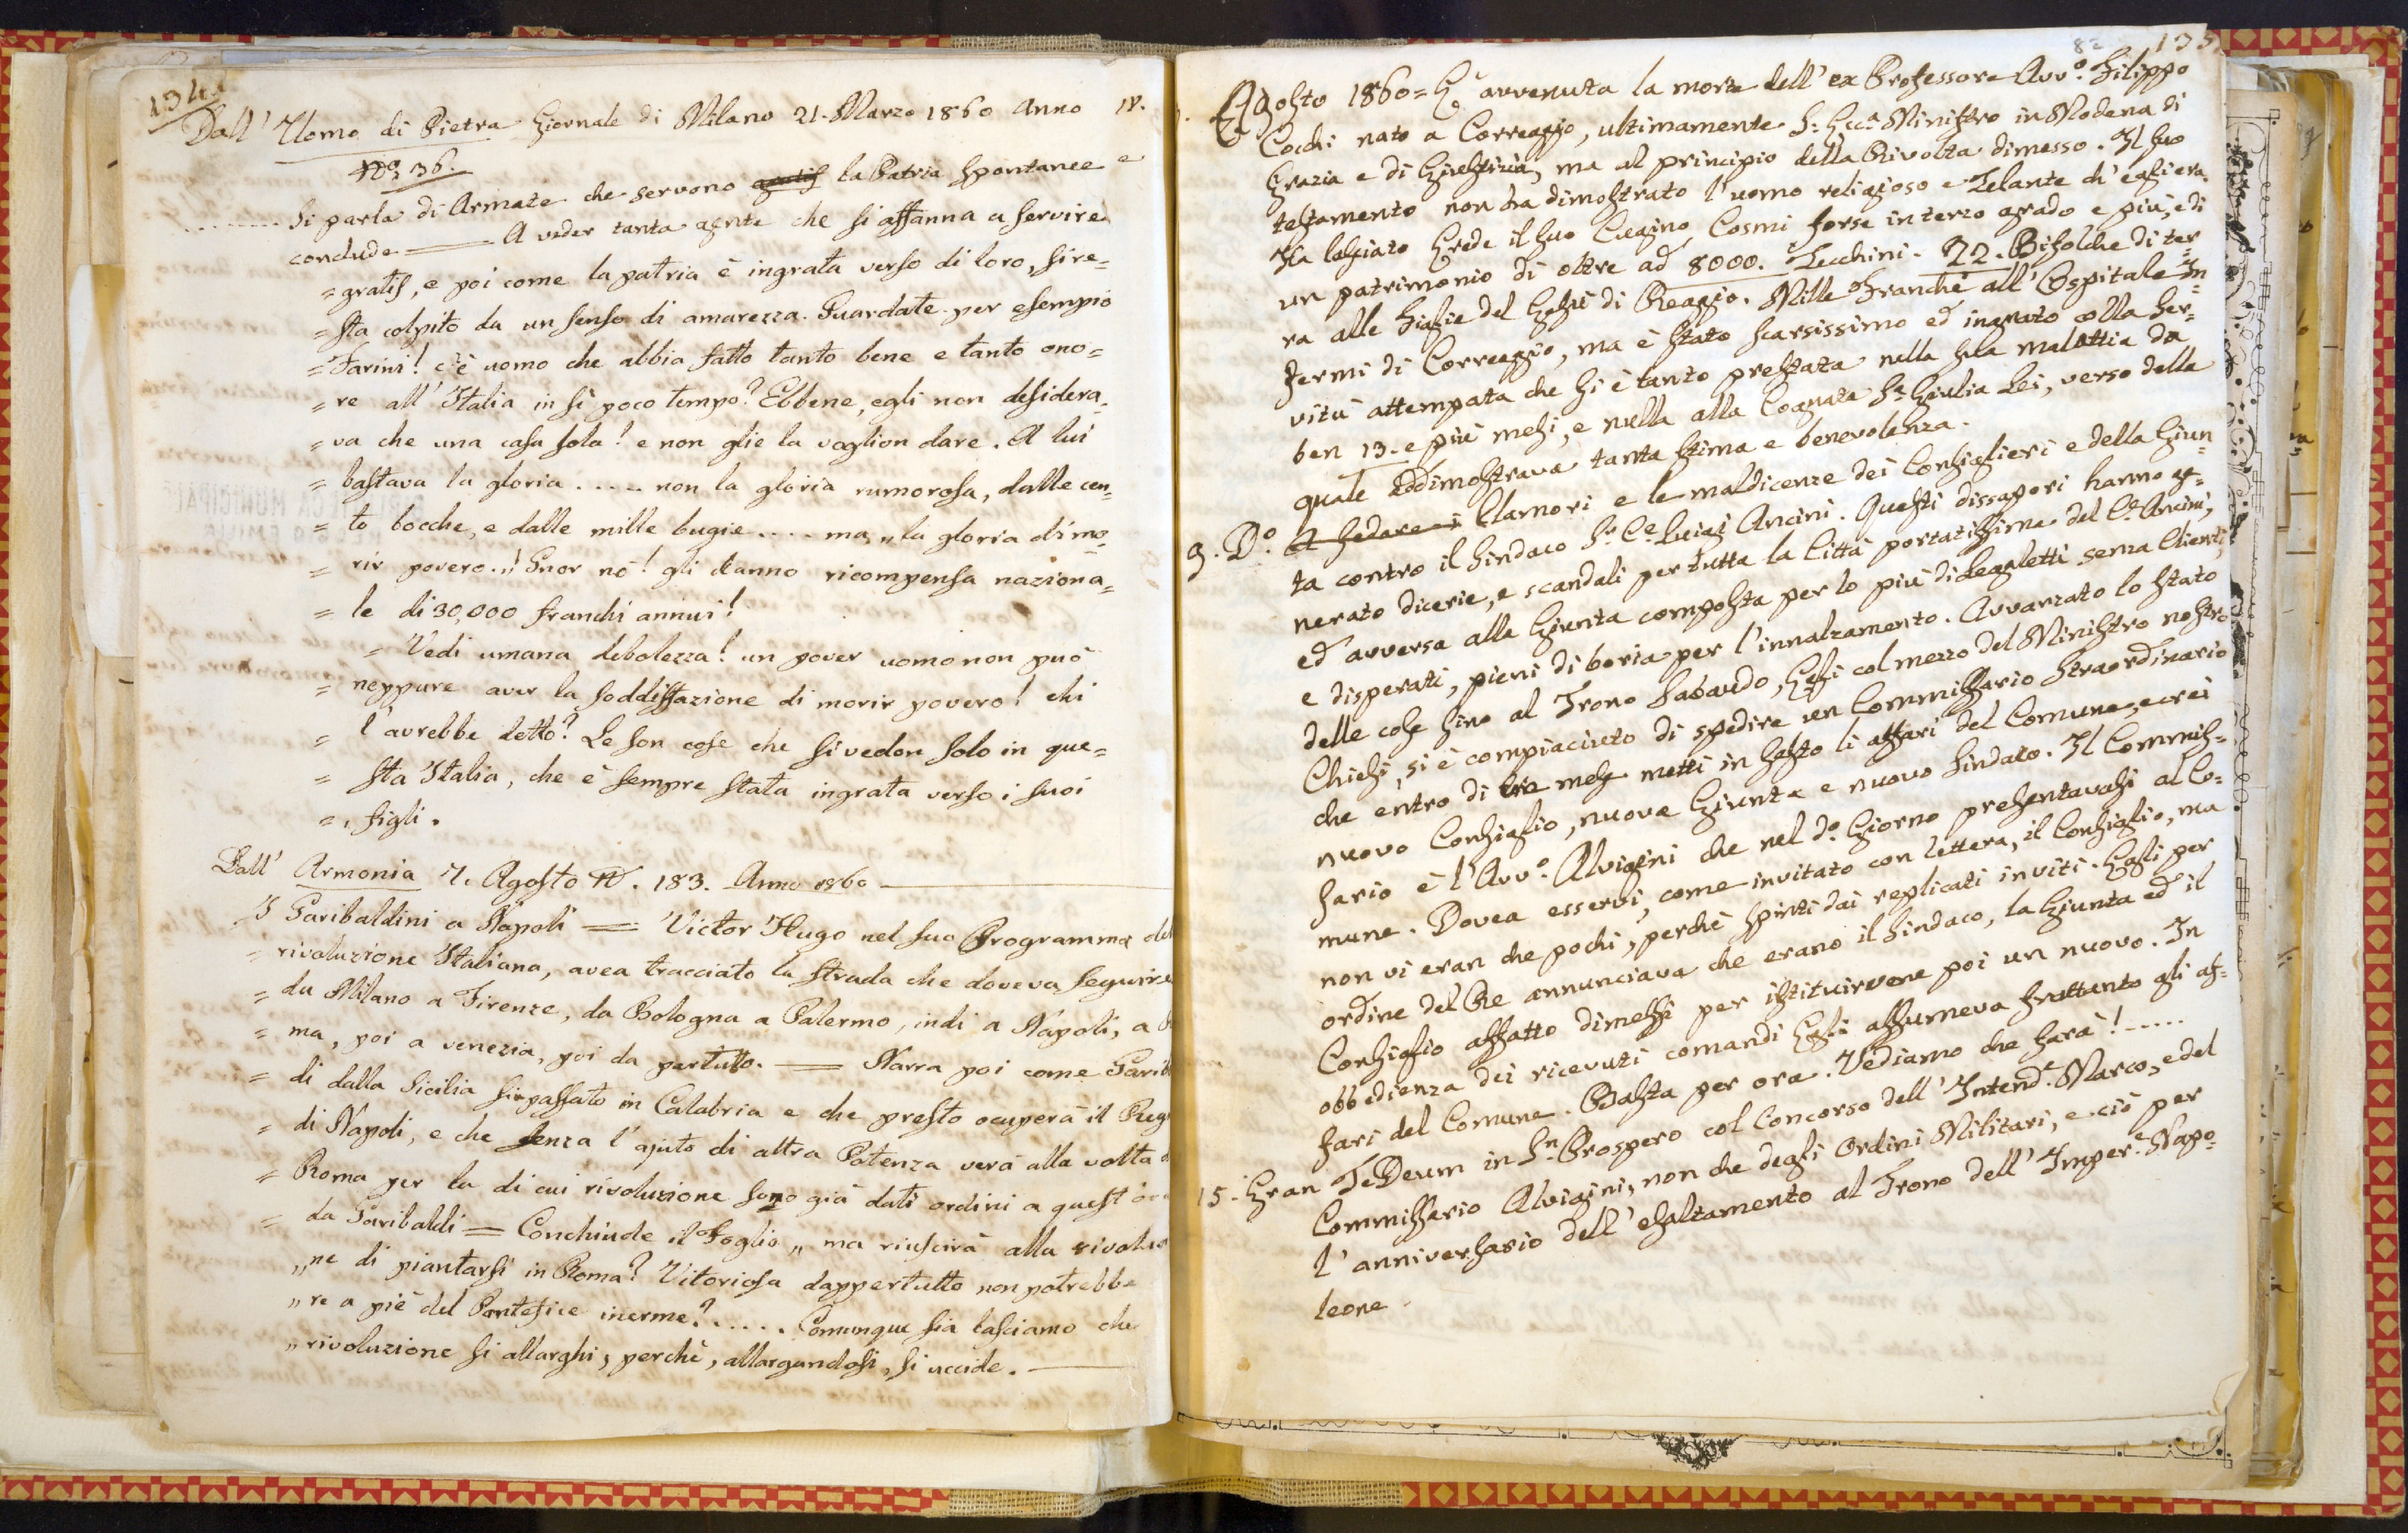 134
Dall' Uomo di Pietra Giornale di Milano 21. Marzo 1860 Anno IV.
N° 36.
........ Si parla di Armate che servono gratis la Patria spontanee e
conclude —— A veder tanta gente che si affanna a servire
= gratis, e poi come la patria è ingrata verso di loro, si re=
= sta colpito da un senso di amarezza. Guardate per esempio
= Farini! c'è uomo che abbia fatto tanto bene e tanto ono=
= re all' Italia in sì poco tempo? Ebbene, egli non desidera=
= va che una casa sola! e non glie la voglion dare. A lui
= bastava la gloria .... non la gloria rumorosa, dalle cen=
= to bocche, e dalle mille bugie .... ma „ la gloria di mo=
= rir povero..! Gnor nò! gli danno ricompensa naziona=
= le di 30,000 franchi annui!
= Vedi umana debolezza! un pover uomo non può
= neppure aver la soddisfazione di morir povero! chi
= l'avrebbe detto? Le son cose che si vedon solo in que=
= sta Italia, che è sempre stata ingrata verso i suoi
= figli.
Dall' Armonia 7. Agosto N. 183. Anno 1860 ——
I Garibaldini a Napoli = Victor Hugo nel suo Programma del
= rivoluzione Italiana, avea tracciato la strada che doveva seguire
= da Milano a Firenze, da Bologna a Palermo, indi a Napoli, a
= ma, poi a venezia, poi da partutto. —— Narra poi come Garib
= di dalla Sicilia sia passato in Calabria e che presto ocuperà il Reg
= di Napoli, e che senza l'ajuto di altra Potenza verà alla volta
= Roma per la di cui rivoluzione sono già dati ordini a quest'or
= da Garibaldi = Conchiude il Foglio „ ma riuscirà alla rivoluzio
„ ne di piantarsi in Roma? Vitoriosa dappertutto non potrebbe
„ re a piè del Pontefice inerme? ..... Comunque sia lasciamo che
„ rivoluzione si allarghi, perchè, allargandosi, si uccide. ——
82 135
Agosto 1860 = E' avvenuta la morte dell' ex Professore Avv.o Filippo
Cocchi nato a Correggio, ultimamente S. Ecc.a Ministro in Modena di
Grazia e di Giustizia, ma al principio della Rivolta dimesso. Il suo
testamento non ha dimostrato l'uomo religioso e Zelante ch'egli era.
Ha lasciato Erede il suo Cugino Cosmi forse in terzo grado e più, e di
un patrimonio di oltre ad 8000. Zecchini. 22. Bifolche di ter=
ra alle Figlie del Gesù di Reggio. Mille Franchi all' Ospitale In=
fermi di Correggio, ma è stato scarsissimo ed ingrato colla Ser=
vitù attempata che si è tanto prestata nella sua malattia da
ben 13. e più mesi, e nulla alla Cognata S.a Giulia Lei, verso della
quale addimostrava tanta stima e benevolenza.
9. D.o A sedare i Clamori e le maldicenze dei Consiglieri e della Giun=
ta contro il Sindaco S.r C.e Luigi Ancini. Questi dissapori hanno ge=
nerato dicerie, e scandali per tutta la Città portatissima del C.e Ancini,
ed avversa alla Giunta composta per lo più di Legaletti senza Clienti,
e disperati, pieni di boria per l'innalzamento. Avvanzato lo stato
delle cose sino al Trono Sabaudo, Egli col mezzo del Ministro nostro
Chiesi, si è compiaciuto di spedire un Commissario Straordinario
che entro di tre mesi metti in sesto li affari del Comune, e crei
nuovo Consiglio, nuova Giunta e nuovo Sindaco. Il Commis=
sario è l'Avv.o Alvigini che nel d.o Giorno presentavasi al Co=
mune. Dovea esservi, come invitato con lettera, il Consiglio, ma
non vi eran che pochi, perchè spinti dai replicati inviti. Egli per
ordine del Re annunciava che erano il Sindaco, la Giunta ed il
Consiglio affatto dimessi per istituirvene poi un nuovo. In
obbedienza dei ricevuti comandi Egli assumeva frattanto gli af=
fari del Comune. Basta per ora. Vediamo che farà! .....
15. Gran TeDeum in S.n Prospero col Concorso dell' Intend.e Marco, e del
Commissario Alvigini, non che degli Ordini Militari, e ciò per
l'anniversario dell' esaltamento al Trono dell' Imper.e Napo=
leone.